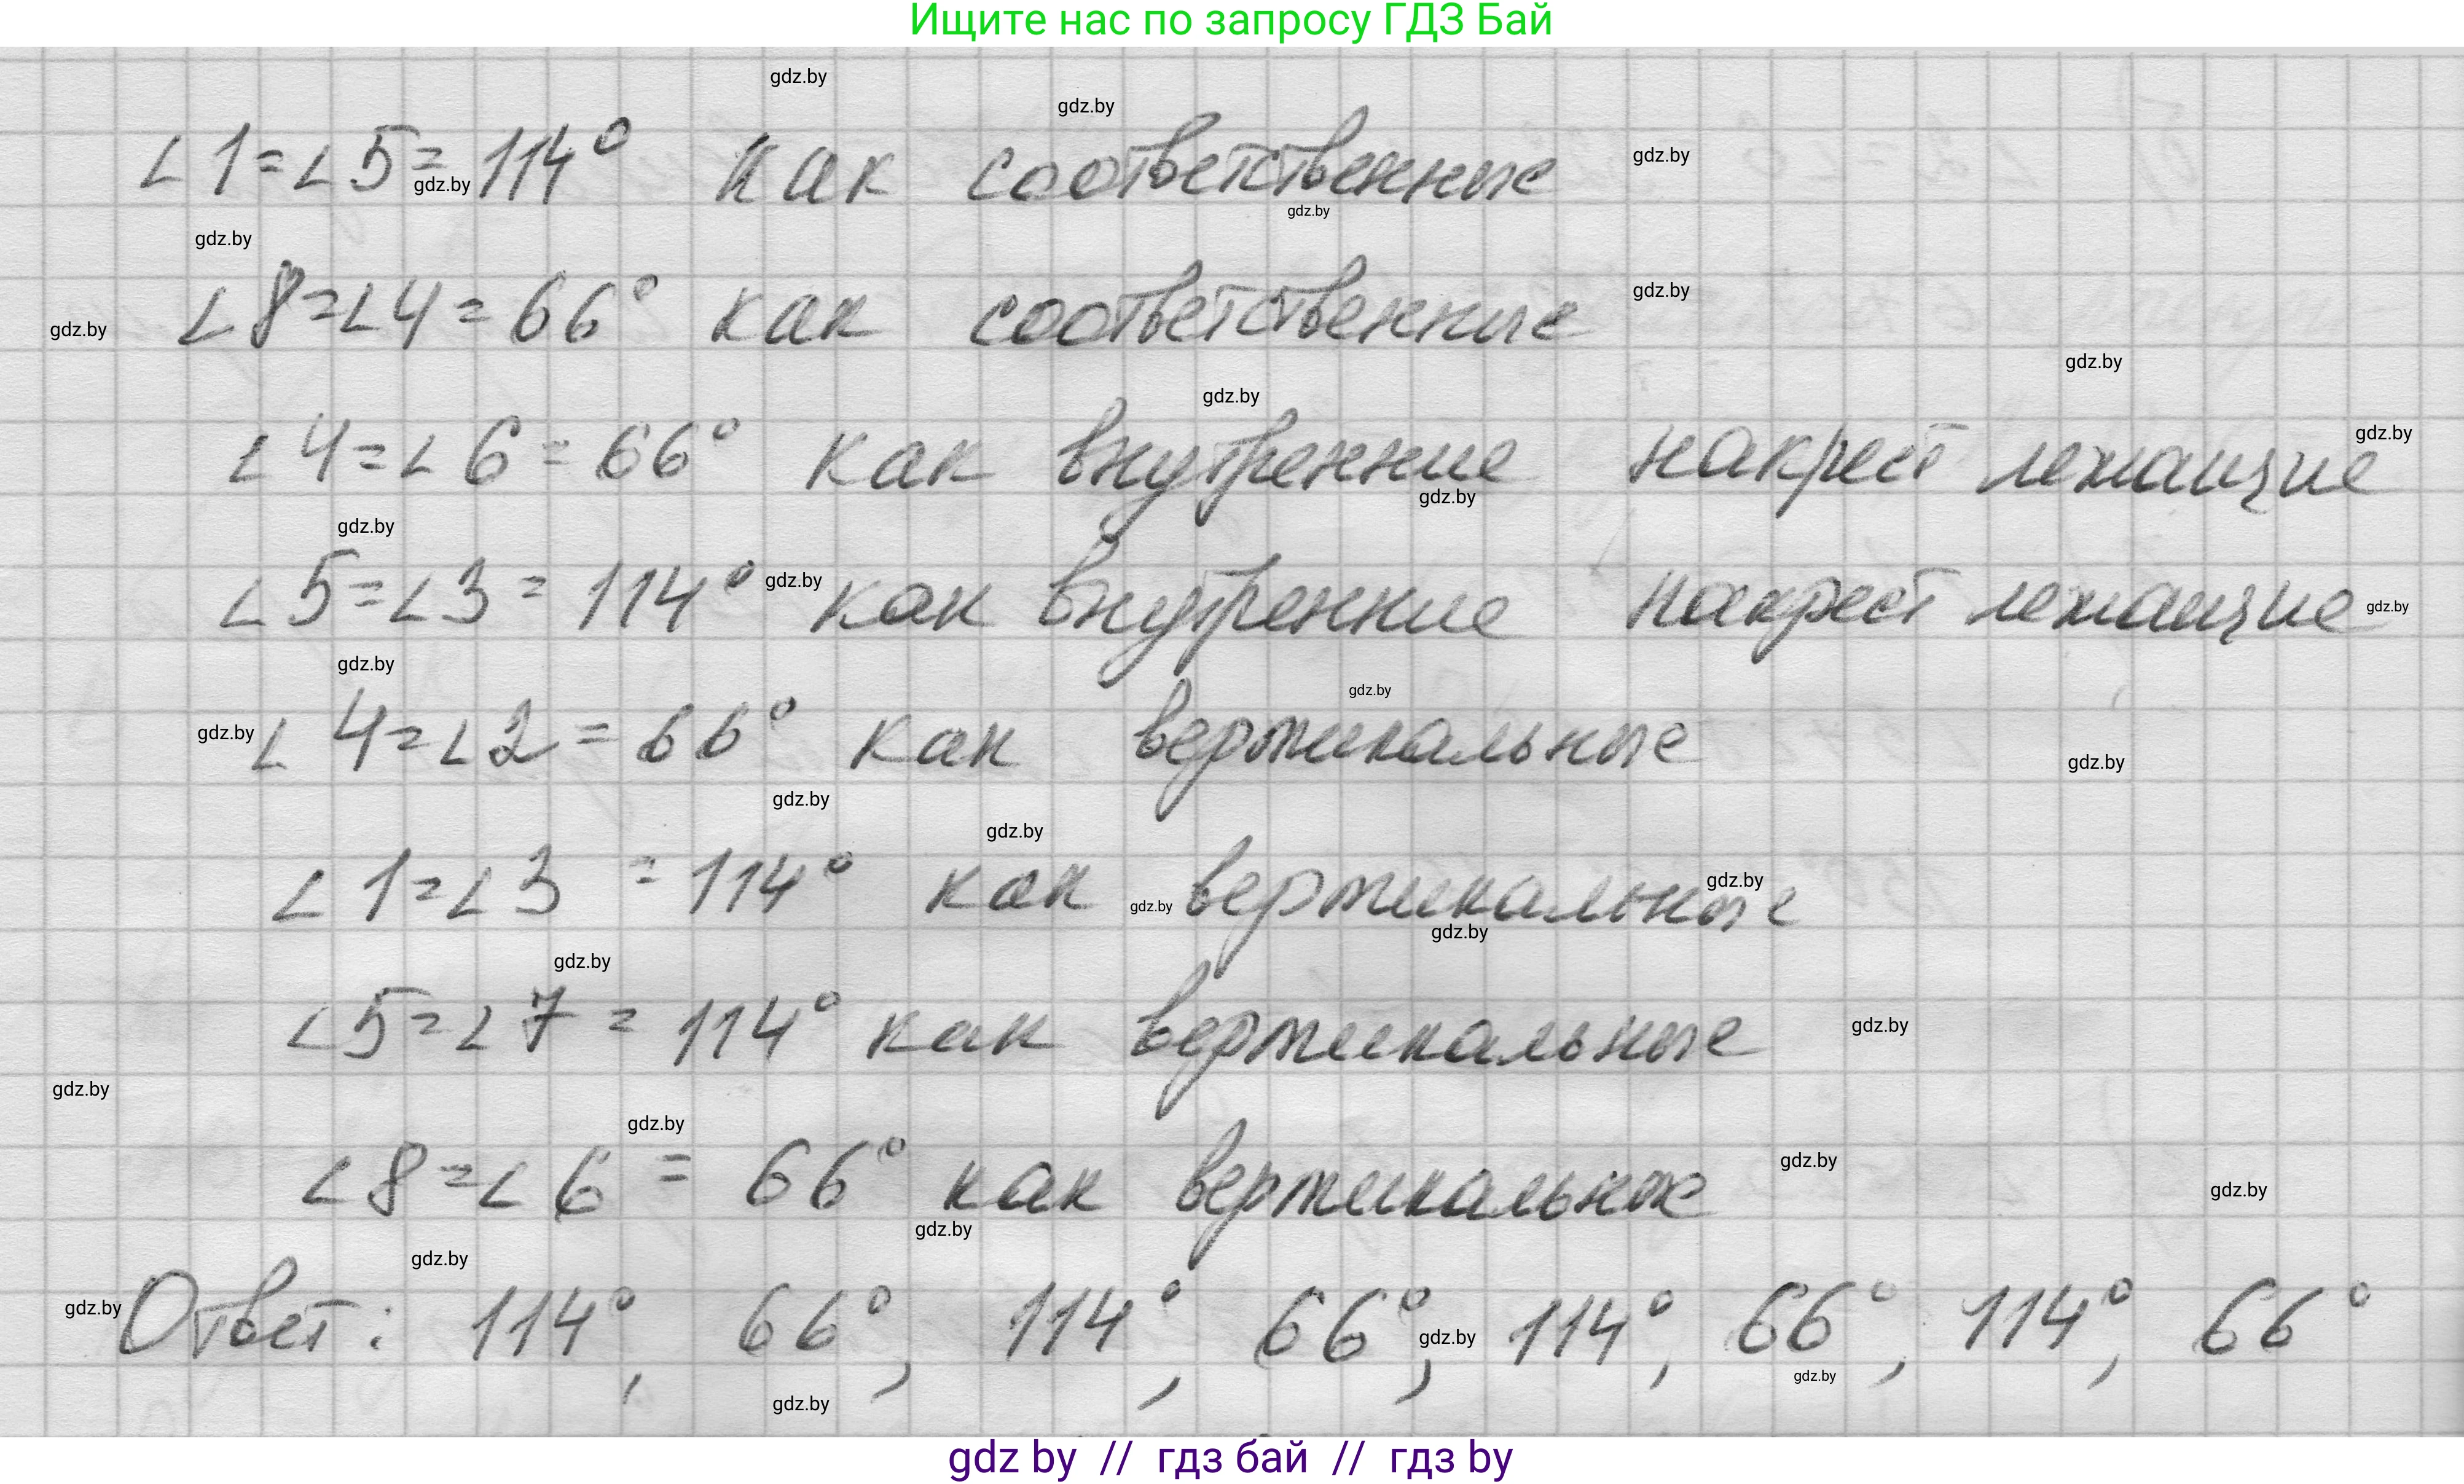 Ищите нас по запросу ГДЗ Бай
gdz.by
gdz.by
∠1=∠5=114° как соответственные
gdz.by
gdz.by
gdz.by
gdz.by
∠8=∠4=66° как соответственные
gdz.by
gdz.by
gdz.by
gdz.by
∠4=∠6=66° как внутренние накрест лежащие
gdz.by
gdz.by
gdz.by
∠5=∠3=114° как внутренние накрест лежащие
gdz.by
gdz.by
gdz.by
gdz.by
∠4=∠2=66° как вертикальные
gdz.by
gdz.by
gdz.by
gdz.by
∠1=∠3=114° как вертикальные
gdz.by
gdz.by
gdz.by
gdz.by
∠5=∠7=114° как вертикальные
gdz.by
gdz.by
gdz.by
∠8=∠6=66° как вертикальные
gdz.by
gdz.by
gdz.by
gdz.by
Ответ: 114°, 66°, 114°, 66°, 114°, 66°, 114°, 66°
gdz.by
gdz.by
gdz.by
gdz.by
gdz by // гдз бай // гдз by